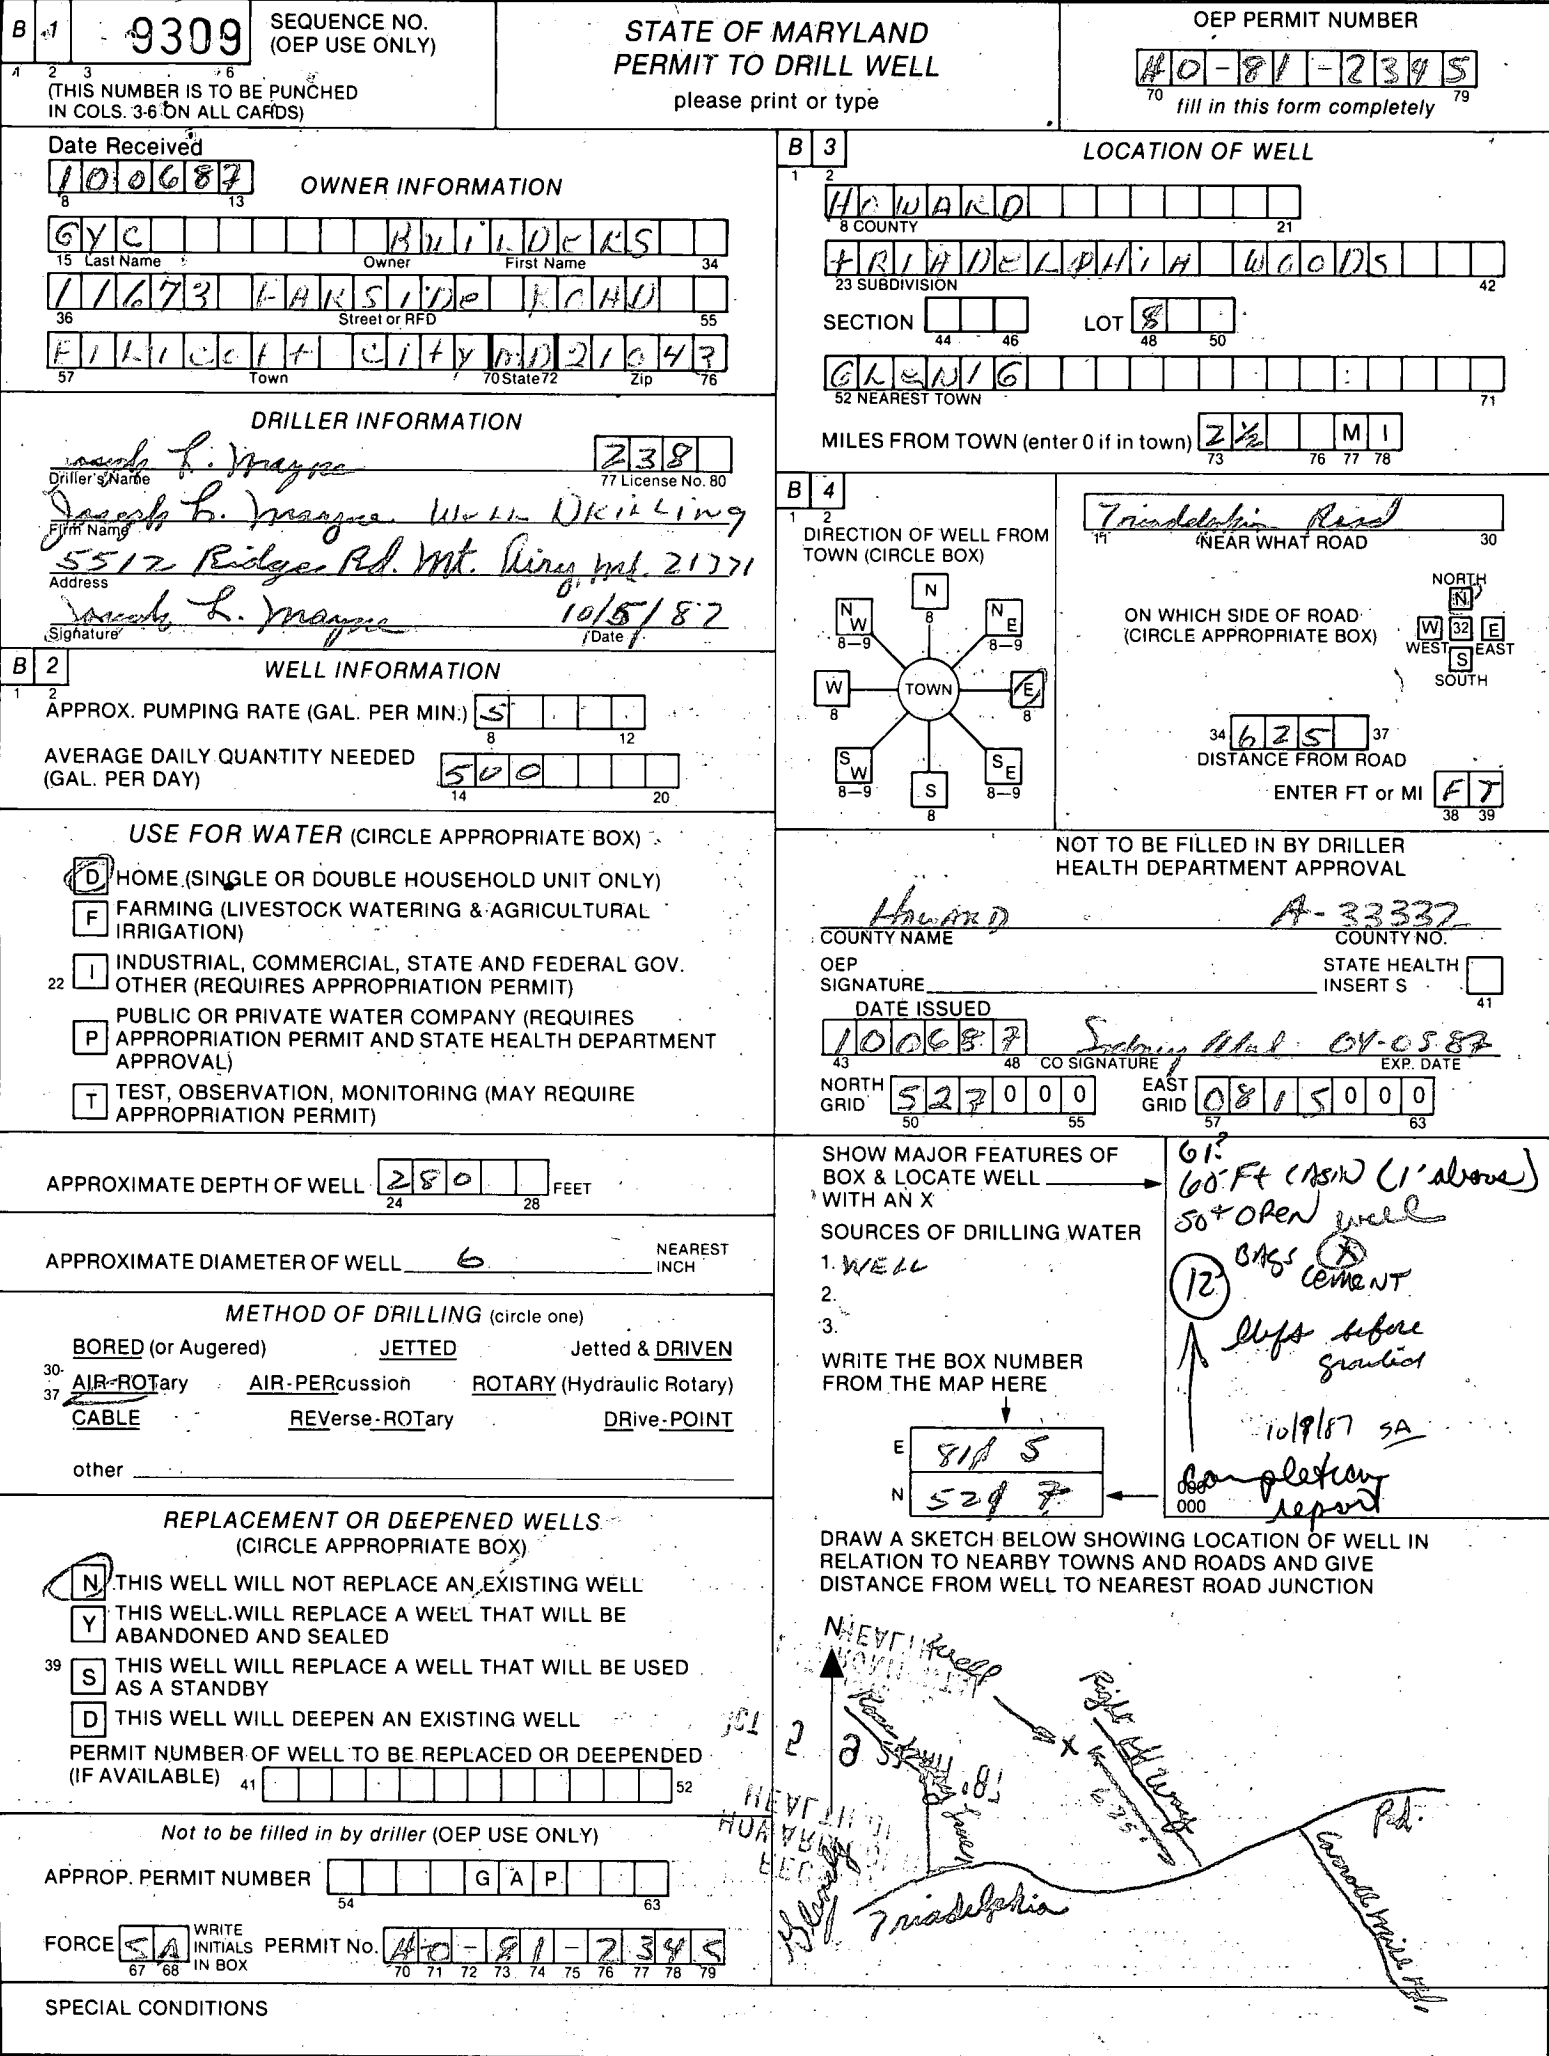 B 1
9309
SEQUENCE NO.
(OEP USE ONLY)
1 2 3 6
(THIS NUMBER IS TO BE PUNCHED
IN COLS. 3-6 ON ALL CARDS)
STATE OF MARYLAND
PERMIT TO DRILL WELL
please print or type
OEP PERMIT NUMBER
HO-81-2345
70 79
fill in this form completely
Date Received
100687
8 13
OWNER INFORMATION
GYC BuiLDeRS
15 Last Name Owner First Name 34
11673 FARSIDe ROAD
36 Street or RFD 55
ELLicott City MD 21043
57 Town 70 State 72 Zip 76
DRILLER INFORMATION
Joseph L. Mayne 238
Driller's Name 77 License No. 80
Joseph L. Mayne Well Drilling
Firm Name
5512 Ridge Rd. Mt. Airy Md. 21771
Address
Joseph L. Mayne 10/5/87
Signature Date
B 2
1 2
WELL INFORMATION
APPROX. PUMPING RATE (GAL. PER MIN.) 5
8 12
AVERAGE DAILY QUANTITY NEEDED
(GAL. PER DAY) 500
14 20
USE FOR WATER (CIRCLE APPROPRIATE BOX)
D HOME (SINGLE OR DOUBLE HOUSEHOLD UNIT ONLY)
F FARMING (LIVESTOCK WATERING & AGRICULTURAL
IRRIGATION)
22 I INDUSTRIAL, COMMERCIAL, STATE AND FEDERAL GOV.
OTHER (REQUIRES APPROPRIATION PERMIT)
P PUBLIC OR PRIVATE WATER COMPANY (REQUIRES
APPROPRIATION PERMIT AND STATE HEALTH DEPARTMENT
APPROVAL)
T TEST, OBSERVATION, MONITORING (MAY REQUIRE
APPROPRIATION PERMIT)
APPROXIMATE DEPTH OF WELL 280 FEET
24 28
APPROXIMATE DIAMETER OF WELL 6 NEAREST
INCH
METHOD OF DRILLING (circle one)
BORED (or Augered) JETTED Jetted & DRIVEN
30-
37
AIR-ROTary AIR-PERcussion ROTARY (Hydraulic Rotary)
CABLE REVerse-ROTary DRive-POINT
other
REPLACEMENT OR DEEPENED WELLS
(CIRCLE APPROPRIATE BOX)
N THIS WELL WILL NOT REPLACE AN EXISTING WELL
Y THIS WELL WILL REPLACE A WELL THAT WILL BE
ABANDONED AND SEALED
39 S THIS WELL WILL REPLACE A WELL THAT WILL BE USED
AS A STANDBY
D THIS WELL WILL DEEPEN AN EXISTING WELL
PERMIT NUMBER OF WELL TO BE REPLACED OR DEEPENED
(IF AVAILABLE) 41 52
Not to be filled in by driller (OEP USE ONLY)
APPROP. PERMIT NUMBER GAP
54 63
FORCE SA WRITE
INITIALS
IN BOX
67 68
PERMIT No. HO-81-2345
70 71 72 73 74 75 76 77 78 79
SPECIAL CONDITIONS
B 3
1 2
LOCATION OF WELL
HOWARD
8 COUNTY 21
tRIADELPHiA WOODS
23 SUBDIVISION 42
SECTION LOT 8
44 46 48 50
GLeNIG
52 NEAREST TOWN 71
MILES FROM TOWN (enter 0 if in town) 2½ MI
73 76 77 78
B 4
1 2
DIRECTION OF WELL FROM
TOWN (CIRCLE BOX)
N
8
NW
8-9
NE
8-9
W
8
TOWN
E
8
SW
8-9
SE
8-9
S
8
Triadelphia Road
11 NEAR WHAT ROAD 30
ON WHICH SIDE OF ROAD
(CIRCLE APPROPRIATE BOX)
NORTH
N
W 32 E
WEST EAST
S
SOUTH
34 625 37
DISTANCE FROM ROAD
ENTER FT or MI FT
38 39
NOT TO BE FILLED IN BY DRILLER
HEALTH DEPARTMENT APPROVAL
HOWARD A-33332
COUNTY NAME COUNTY NO.
OEP
SIGNATURE
STATE HEALTH
INSERT S
41
DATE ISSUED
100687 04-05-87
43 48 CO SIGNATURE EXP. DATE
NORTH
GRID 527000
50 55
EAST
GRID 0815000
57 63
SHOW MAJOR FEATURES OF
BOX & LOCATE WELL
WITH AN X
SOURCES OF DRILLING WATER
1. WELL
2.
3.
WRITE THE BOX NUMBER
FROM THE MAP HERE
E 815
N 527
000
000
60 Ft CASIN (1' above)
50+ OPEN well
X
12 BAGS
CEMENT
before
grouted
10/9/87 SA
Completion
report
DRAW A SKETCH BELOW SHOWING LOCATION OF WELL IN
RELATION TO NEARBY TOWNS AND ROADS AND GIVE
DISTANCE FROM WELL TO NEAREST ROAD JUNCTION
N
well
X
625'
Right of Way
Lane
Triadelphia
Rd.
Carroll Mill Rd.